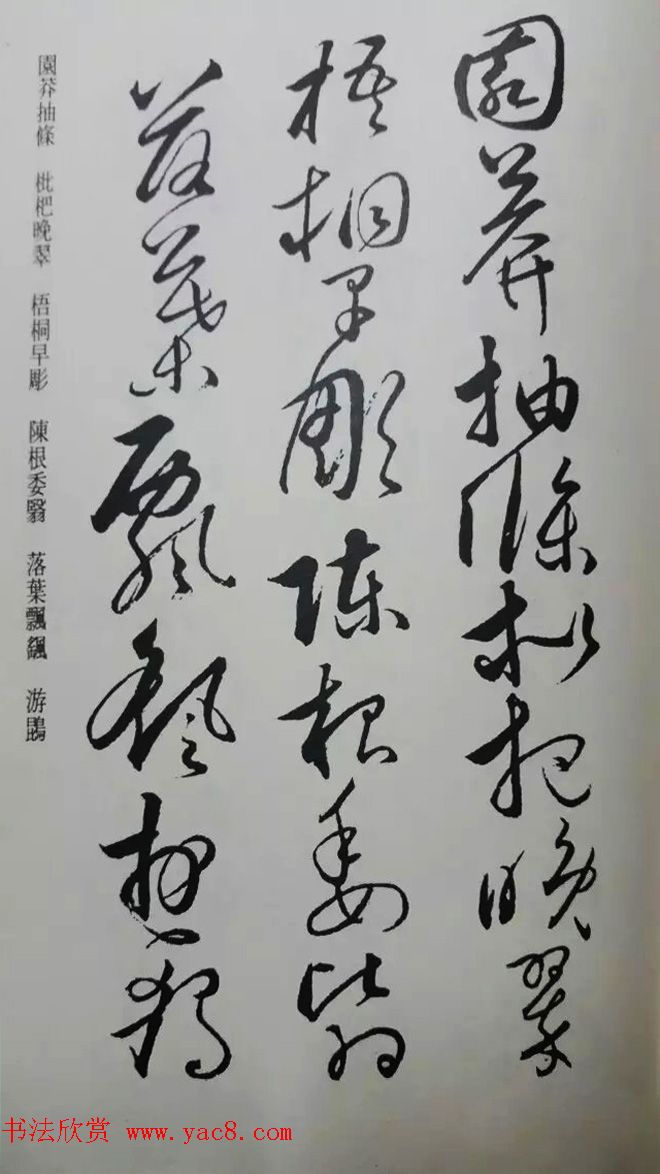 園莽抽條枇杷晚翠
梧桐早彫陳根委翳
落葉飄颻游鵾
園莽抽條 枇杷晚翠 梧桐早彫 陳根委翳 落葉飄颻 游鵾
书法欣赏 www.yac8.com